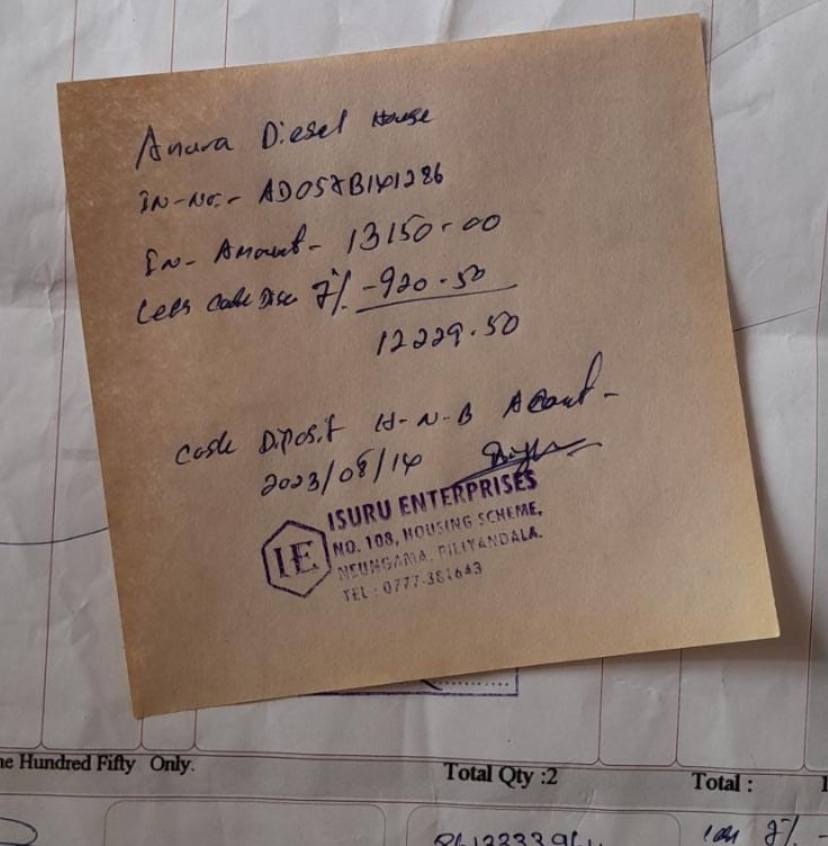 Anura Diesel House
IN-No:- AD05XB141286
IN- Amount- 13150-00
Less Cash Disc 7% -920.50
12229.50
Cash Diposit H-N-B Acount-
2023/08/14
ISURU ENTERPRISES
IE
NO. 108, HOUSING SCHEME,
NEUNGAMA, PILIYANDALA.
TEL : 0777-381643
ne Hundred Fifty Only.
Total Qty :2
Total :
Less 7% -